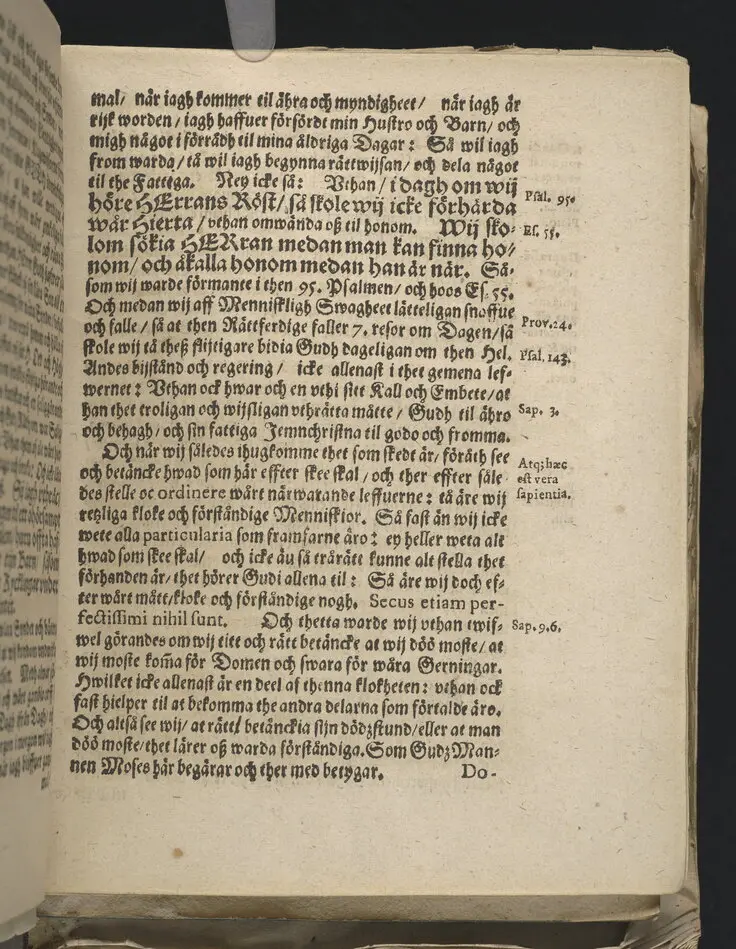 mal/ när iagh kommer til ähra och myndigheet/ när iagh är
rijk worden/ iagh haffuer försördt min Hustro och Barn/ och
migh något i förrådh til mina äldriga Dagar: Så wil iagh
from warda/ tå wil iagh begynna rättwijsan/ och dela något
til the Fattiga. Ney icke så: Vthan/ i dagh om wij
höre HErrans Röst/ så skole wij icke förhärda
wår Hierta/ vthan omwända oß til honom. Wij sko-
lom sökia HERran medan man kan finna ho/
nom/ och åkalla honom medan han är når. Så-
som wij warde förmante i then 95. Psalmen/ och hoos Es. 55.
Och medan wij aff Menniskligh Swagheet lätteligan snaffue
och falle/ så at then Rättferdige faller 7. resor om Dagen/ så
skole wij tå theß flijtigare bidia Gudh dageligan om then Hel.
Andes bijstånd och regering/ icke allenast i thet gemena lef-
wernet: Vthan ock hwar och en vthi sitt Kall och Embete/ at
han thet troligan och wijsligan vthrätta måtte/ Gudh til ähro
och behagh/ och sin fattiga Jemnchristna til godo och fromma.
Och när wij således ihugkomme thet som skedt är/ föråth see
och betäncke hwad som här effter skee skal/ och ther effter såle
des stelle oc ordinere wårt närwarande leffuerne: tå äre wij
retzliga kloke och förståndige Menniskior. Så fast än wij icke
wete alla particularia som framfarne äro: ey heller weta alt
hwad som skee skal/ och icke äu så trärätt kunne alt stella thet
förhanden är/ thet hörer Gudi allena til: Så äre wij doch ef-
ter wårt mått/ kloke och förståndige nogh. Secus etiam per-
fectissimi nihil sunt. Och thetta warde wij vthan twif-
wel görandes om wij titt och rätt betäncke at wij döö moste/ at
wij moste kom̃a för Domen och swara för wåra Gerningar.
Hwilket icke allenast är en deel af thenna klokheten: vthan ock
fast hielper til at bekomma the andra delarna som förtalde äro.
Och altså see wij/ at rätt betänckia sijn dödzstund/ eller at man
döö moste/ thet lärer oß warda förståndiga. Som Gudz Man-
nen Moses här begärar och ther med betygar. Do-
Psal. 95.
Es. 55.
Prov. 24.
Psal. 143.
Sap. 3.
Atq; hæc
est vera
sapientia.
Sap. 9.6.